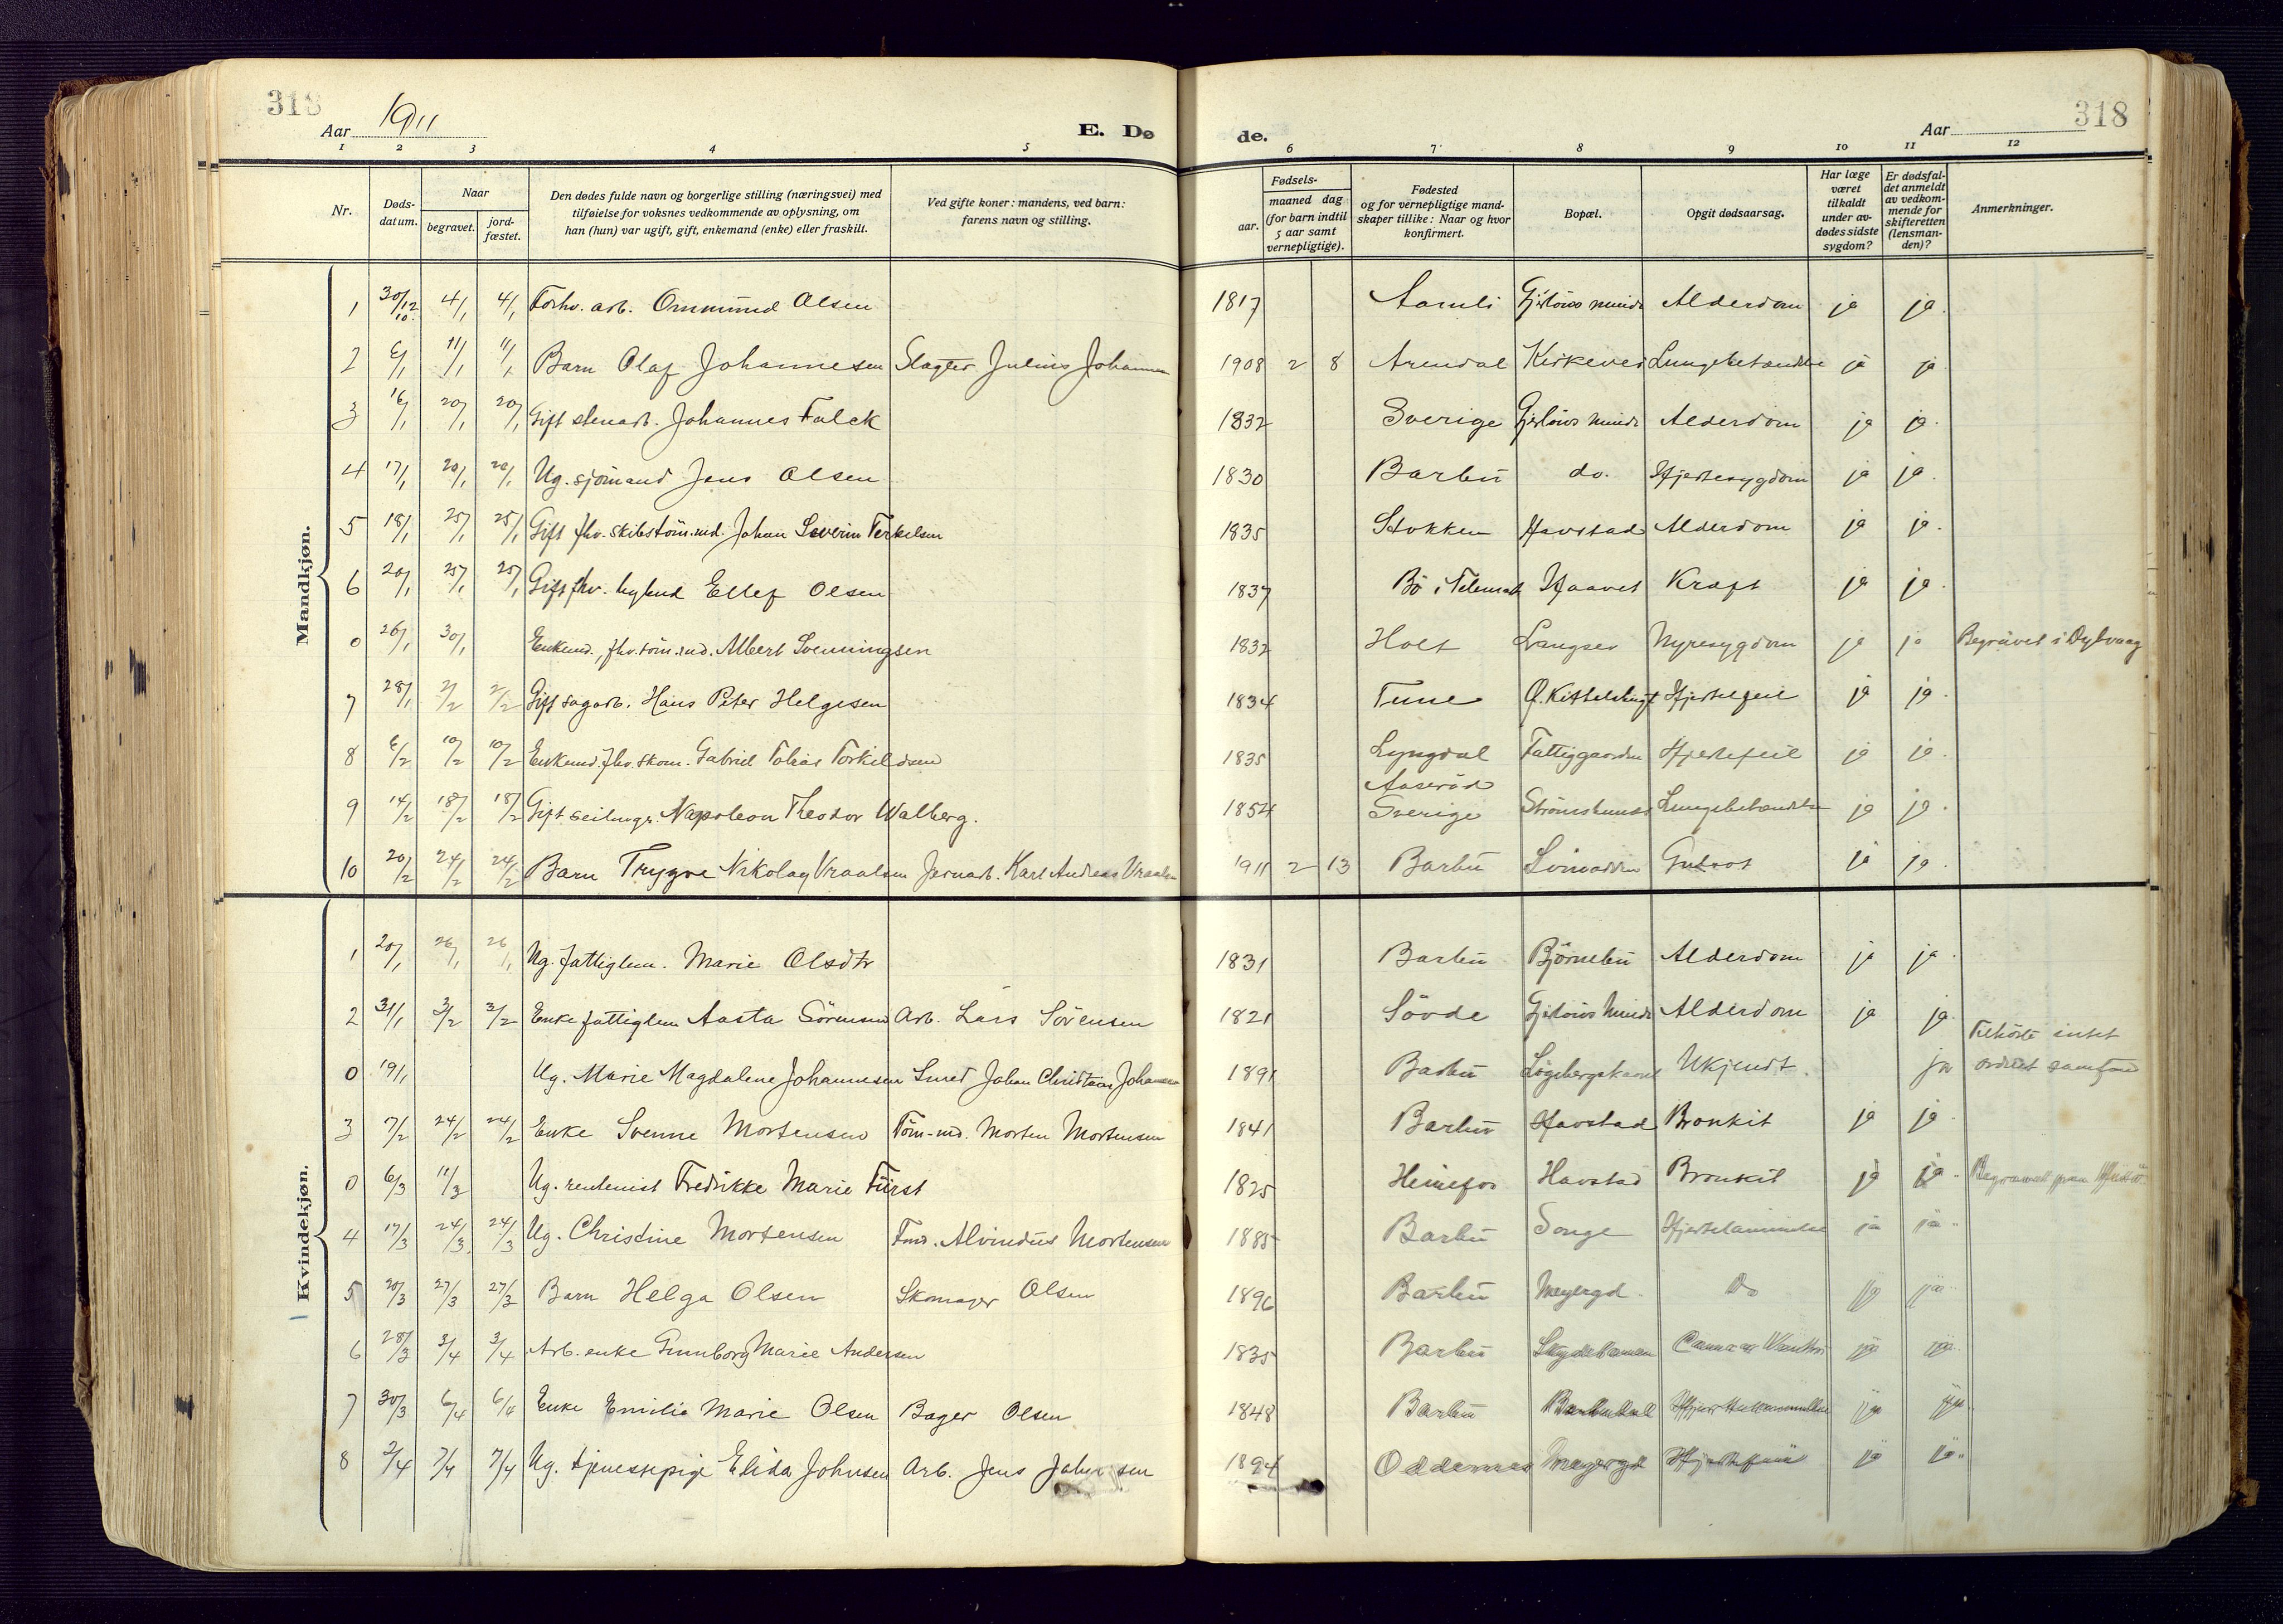 318
Aar 1911
E. Dø
de.
Aar
318
1 2 3 4 5 6 7 8 9 10 11 12
Nr.
Døds-datum.
Naar
begravet.
jord-fæstet.
Den dødes fulde navn og borgerlige stilling (næringsvei) med
tilføielse for voksnes vedkommende av oplysning, om
han (hun) var ugift, gift, enkemand (enke) eller fraskilt.
Ved gifte koner: mandens, ved barn:
farens navn og stilling.
Fødsels-
aar.
maaned dag
(for barn indtil
5 aar samt
vernepligtige).
Fødested
og for vernepligtige mand-
skaper tillike: Naar og hvor
konfirmert.
Bopæl.
Opgit dødsaarsag.
Har læge
været
tilkaldt
under av-
dødes sidste
sygdom?
Er dødsfal-
det anmeldt
av vedkom-
mende for
skifteretten
(lensman-
den)?
Anmerkninger.
Mandkjøn.
1 30/12 10. 4/1 4/1 Forhv. arb. Ommund Olsen 1817 Aamli Gjiløws minde Alderdom ja ja.
2 6/1 11/1 11/1 Barn Olaf Johannesen Slagter Julius Johannesen 1908 2 8 Arendal Kirkevei Lungebetændelse ja ja
3 16/1 20/1 20/1 Gift stenarb. Johannes Falck 1832 Sverige Gjiløws minde Alderdom ja ja.
4 17/1 20/1 20/1 Ug. sjømand Jens Olsen 1830 Barbu do. Hjertesygdom ja ja.
5 18/1 25/1 25/1 Gift fhv. skibstøm.md. Johan Severin Terkelsen 1835 Stokken Havstad Alderdom ja ja.
6 20/1 25/1 25/1 Gift fhv. Ellef Olsen 1837 Bø i Telemark Haavet Kræft ja ja.
0 26/1 30/1 Enkemd., fhv. tøm.md. Albert Svenningsen 1832 Holt Langsev Nyresygdom ja ja Begravet i Dybvaag
7 28/1 2/2 2/2 Gift sagarb. Hans Peter Helgesen 1834 Tune Ø. Kittelsbugt Hjertefeil ja ja.
8 6/2 10/2 10/2 Enkemd. fhv. skom. Gabriel Tobias Torkildsen 1835 Lyngdal Fattiggaarden Hjertefeil ja ja.
9 14/2 18/2 18/2 Gift seilmgr. Napoleon Theodor Walberg. 1854 Aaseröd Sverige Strømsbunes Lungebetændelse ja ja.
10 20/2 24/2 24/2 Barn Trygve Nikolay Vraalsen Jernarb. Karl Andreas Vraalsen 1911 2 13 Barbu Svinodden Gulsot ja ja.
Kvindekjøn.
1 20/1 26/1 26/1 Ug. fattiglem. Marie Olsdtr 1831 Barbu Bjørnebu Alderdom ja ja.
2 31/1 3/2 3/2 Enke fattiglem Aasta Sørensen Arb. Lars Sørensen 1821 Søvde Gjiløws Minde Alderdom ja ja.
0 19/1 Ug. Marie Magdalene Johannesen Smed Johan Christian Johannesen 1891 Barbu Ukjendt. ja Tilhørte intet ordnet samfund
3 7/2 24/2 24/2 Enke Svenne Mortensen Tøm-md. Morten Mortensen 1841 Barbu Havstad Bronkit ja ja.
0 6/3 11/3 Ug. rentenist Fredrikke Marie Fürst 1825 Heinefos Havstad Bronkit ja ja. Begravet paa
4 17/3 24/3 24/3 Ug. Christine Mortensen Alvindus Mortensen 1885 Barbu Songe Hjertelammelse ja ja.
5 20/3 27/3 27/3 Barn Helga Olsen Skomager Olsen 1896 Barbu Meyergd. Do ja ja
6 28/3 3/4 3/4 Arb. enke Gunnborg Marie Andersen 1835 Barbu ja ja.
7 30/3 6/4 6/4 Enke Emilie Marie Olsen Bager Olsen 1848 Barbu Barbudal Hjertelammelse ja ja.
8 2/4 7/4 7/4 Ug. tjenestepige Elida Johnsen Arb. Jens Johnsen 1894 Oddernes Meyergd Hjertefeil ja ja.